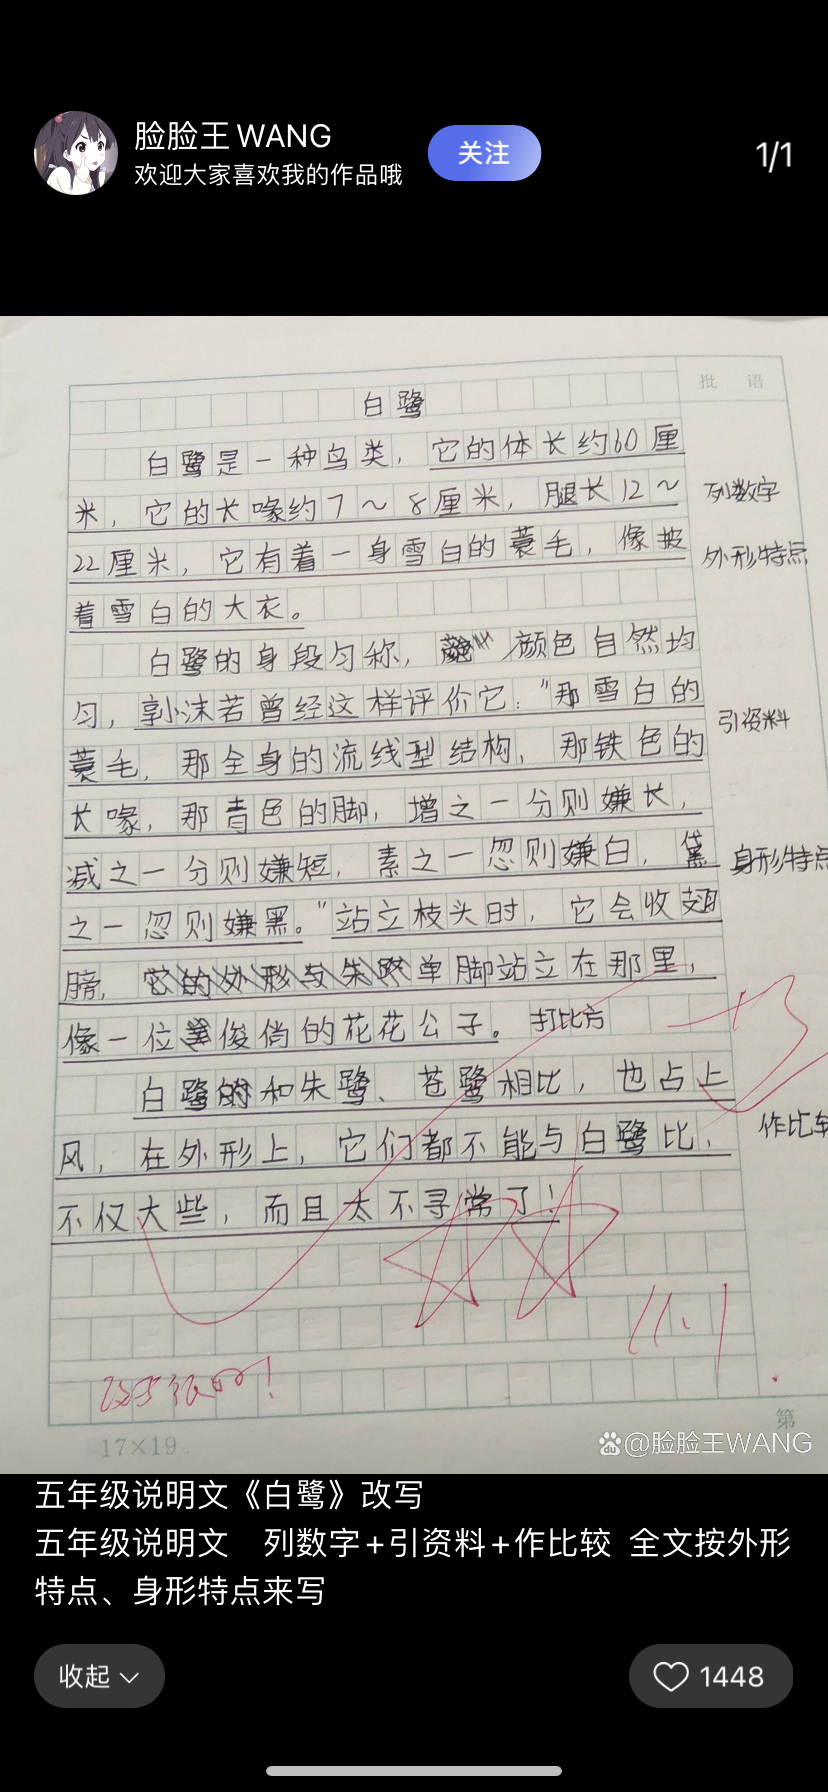 脸脸王WANG
欢迎大家喜欢我的作品哦
关注
1/1
批 语
白鹭
白鹭是一种鸟类，它的体长约60厘
米，它的长喙约7～8厘米，腿长12～
列数字
22厘米，它有着一身雪白的蓑毛，像披
外形特点
着雪白的大衣。
白鹭的身段匀称，颜色自然均
匀，郭沫若曾经这样评价它："那雪白的
引资料
蓑毛，那全身的流线型结构，那铁色的
长喙，那青色的脚，增之一分则嫌长，
减之一分则嫌短，素之一忽则嫌白，黛
身形特点
之一忽则嫌黑。"站立枝头时，它会收翅
膀，单脚站立在那里，
像一位俊俏的花花公子。 打比方
白鹭和朱鹭、苍鹭相比，也占上
风，在外形上，它们都不能与白鹭比，
作比较
不仅大些，而且太不寻常了！
11.1
17×19
第
@脸脸王WANG
五年级说明文《白鹭》改写
五年级说明文 列数字+引资料+作比较 全文按外形
特点、身形特点来写
收起
1448